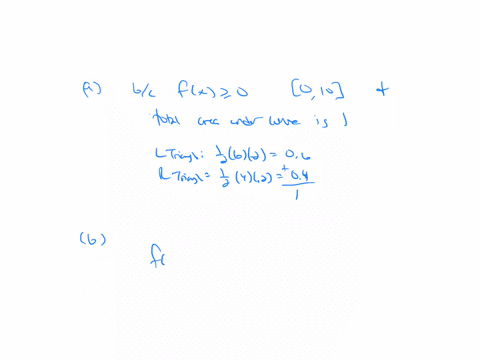 (a) b/c f(x) ≥ 0 [0,10] +
total area under curve is 1
L Triangl: 1/2 (6)(.2) = 0.6
R Triangl = 1/2 (4)(.2) = + 0.4
1
(b) f(